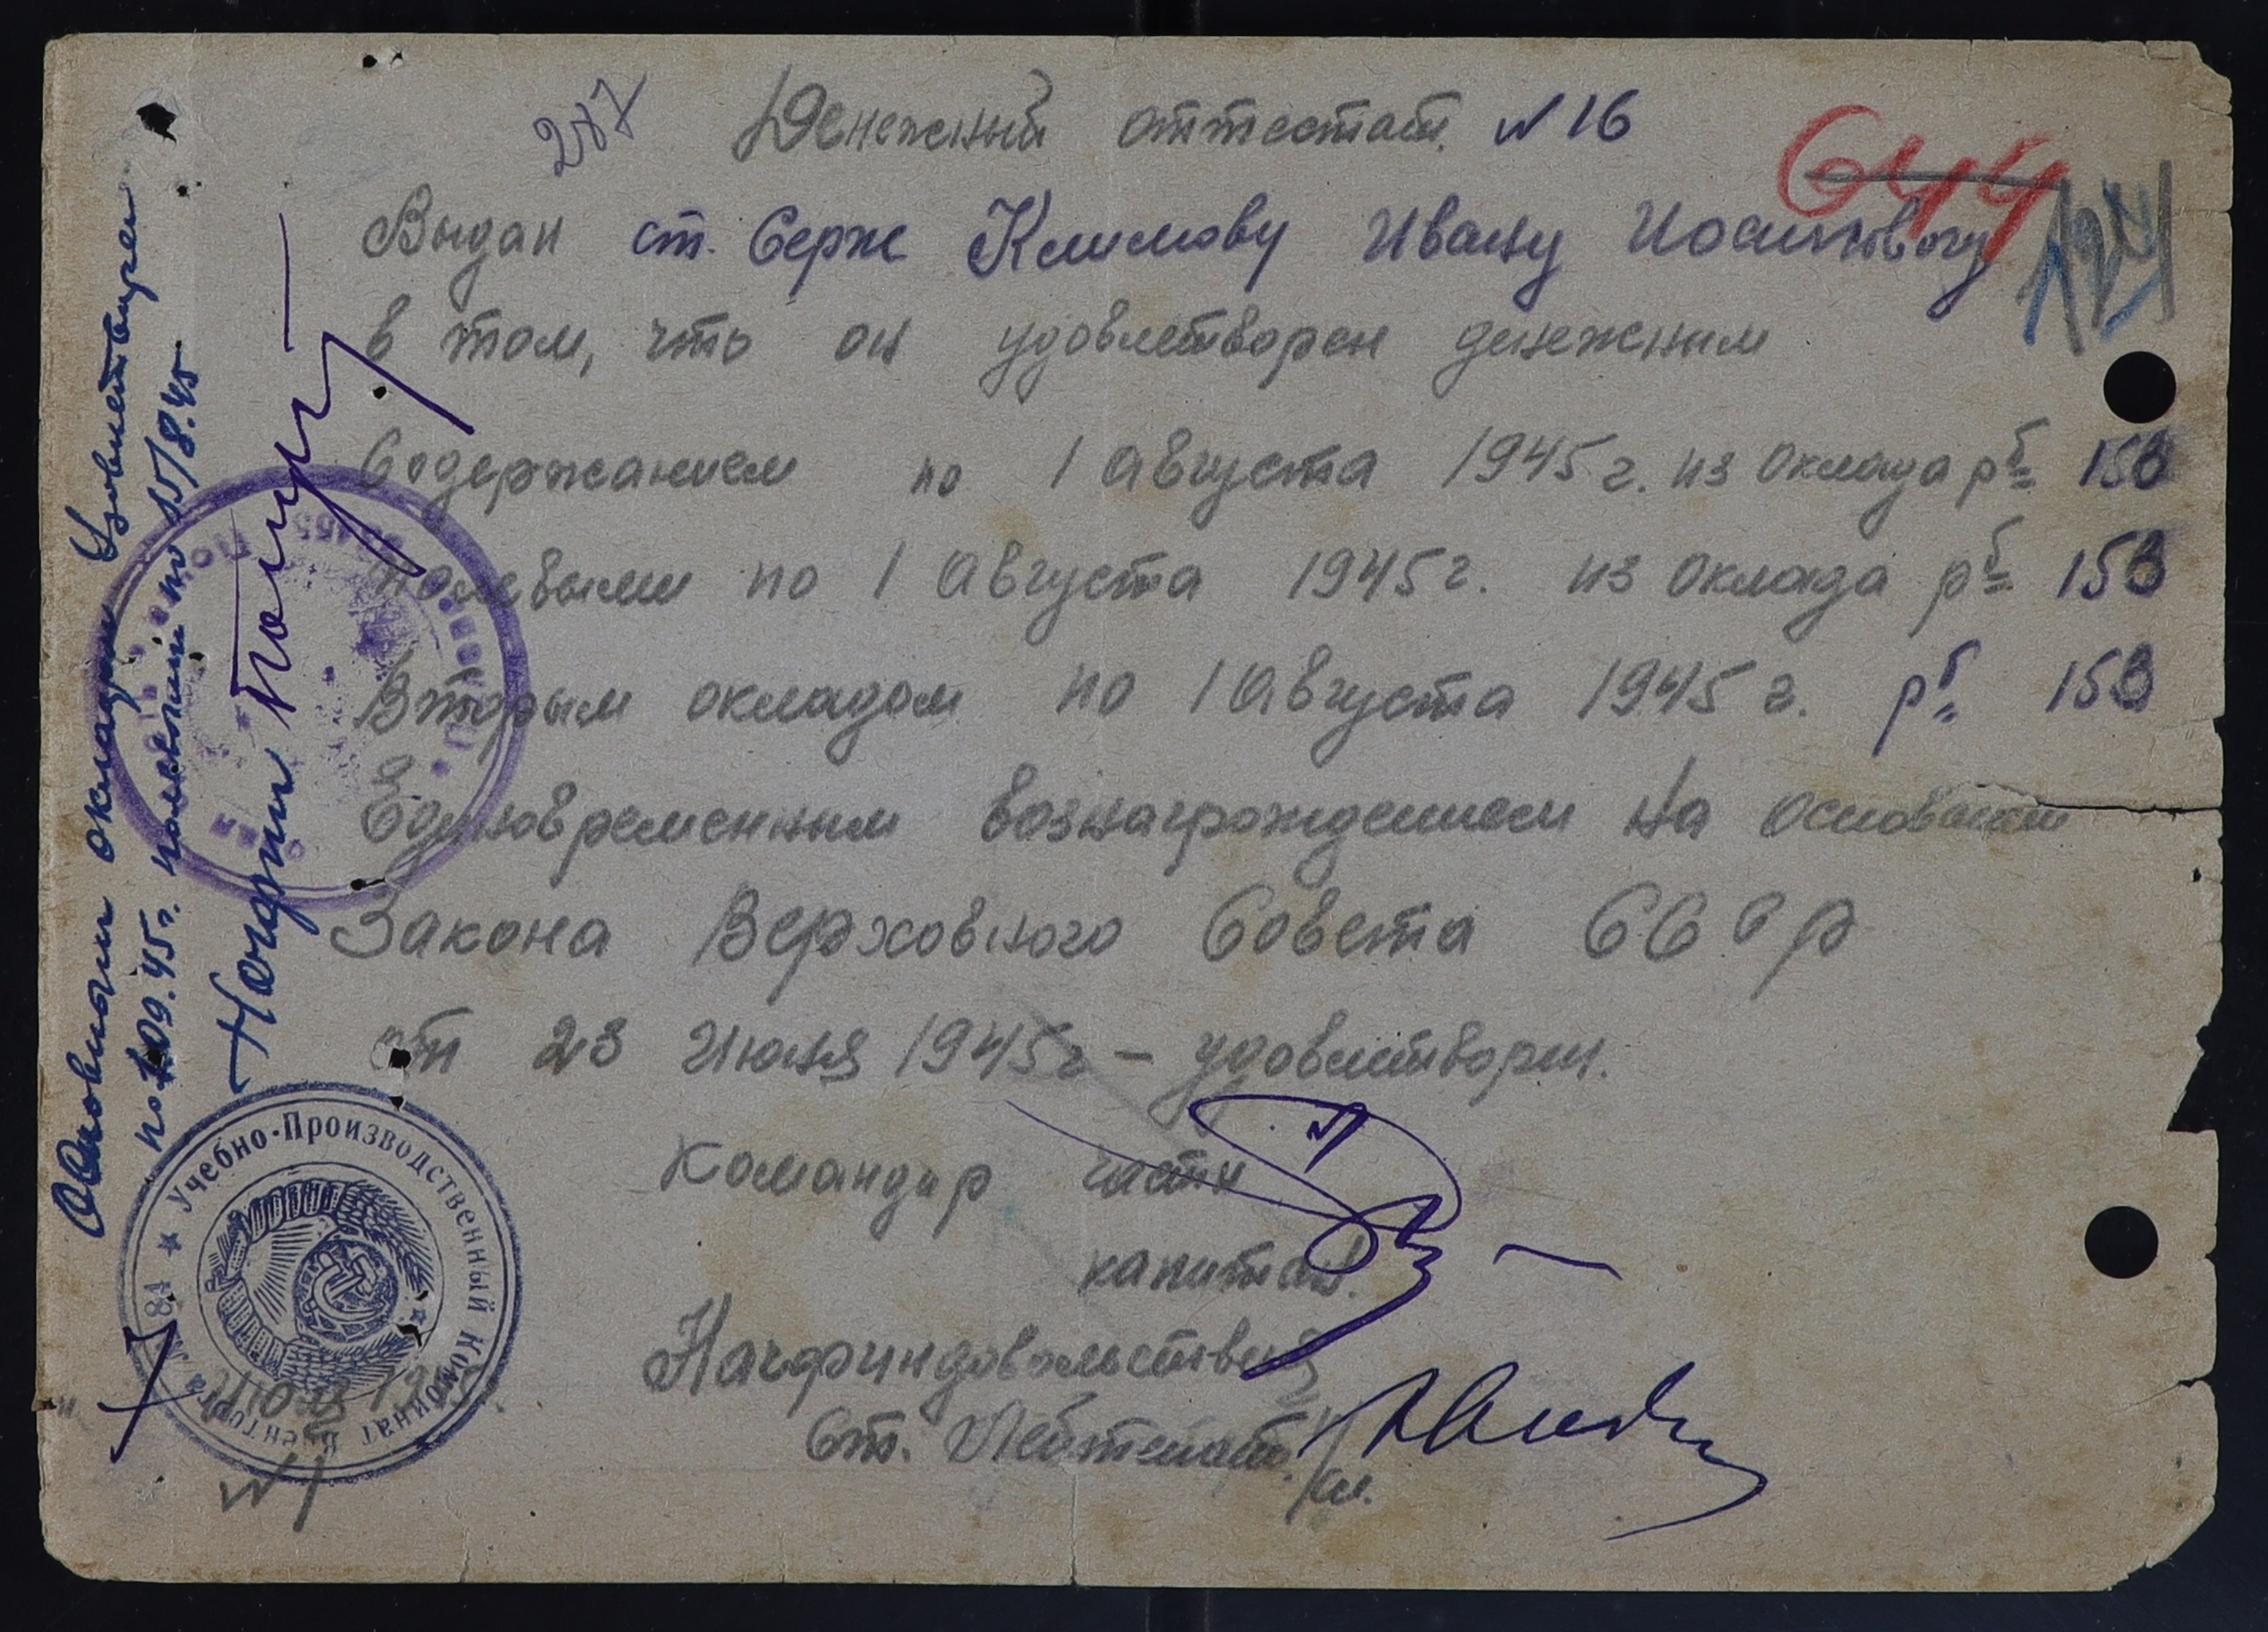 277
Денежный аттестат. N 16
644
124
Выдан ст. Серж Климову Ивану
в том, что он удовлетворен денежным
Содержанием по 1 августа 1945 г. из оклада рб 153
полевыми по 1 августа 1945 г. из оклада рб 153
Вторым окладом по 1 августа 1945 г. рб 153
Единовременным вознаграждением На основании
Закона Верховного Совета СССР
от 23 Июня 1945 г – удовлетворен.
Командир части
капитан
Начфиндовольствия
Ст. Лейтенант
N 1
Основным окладом Удовлетворен
по 1.09.45 г. полевыми по 15/8.45
Начфин
Учебно-Производственный Комбинат Военторга № 84